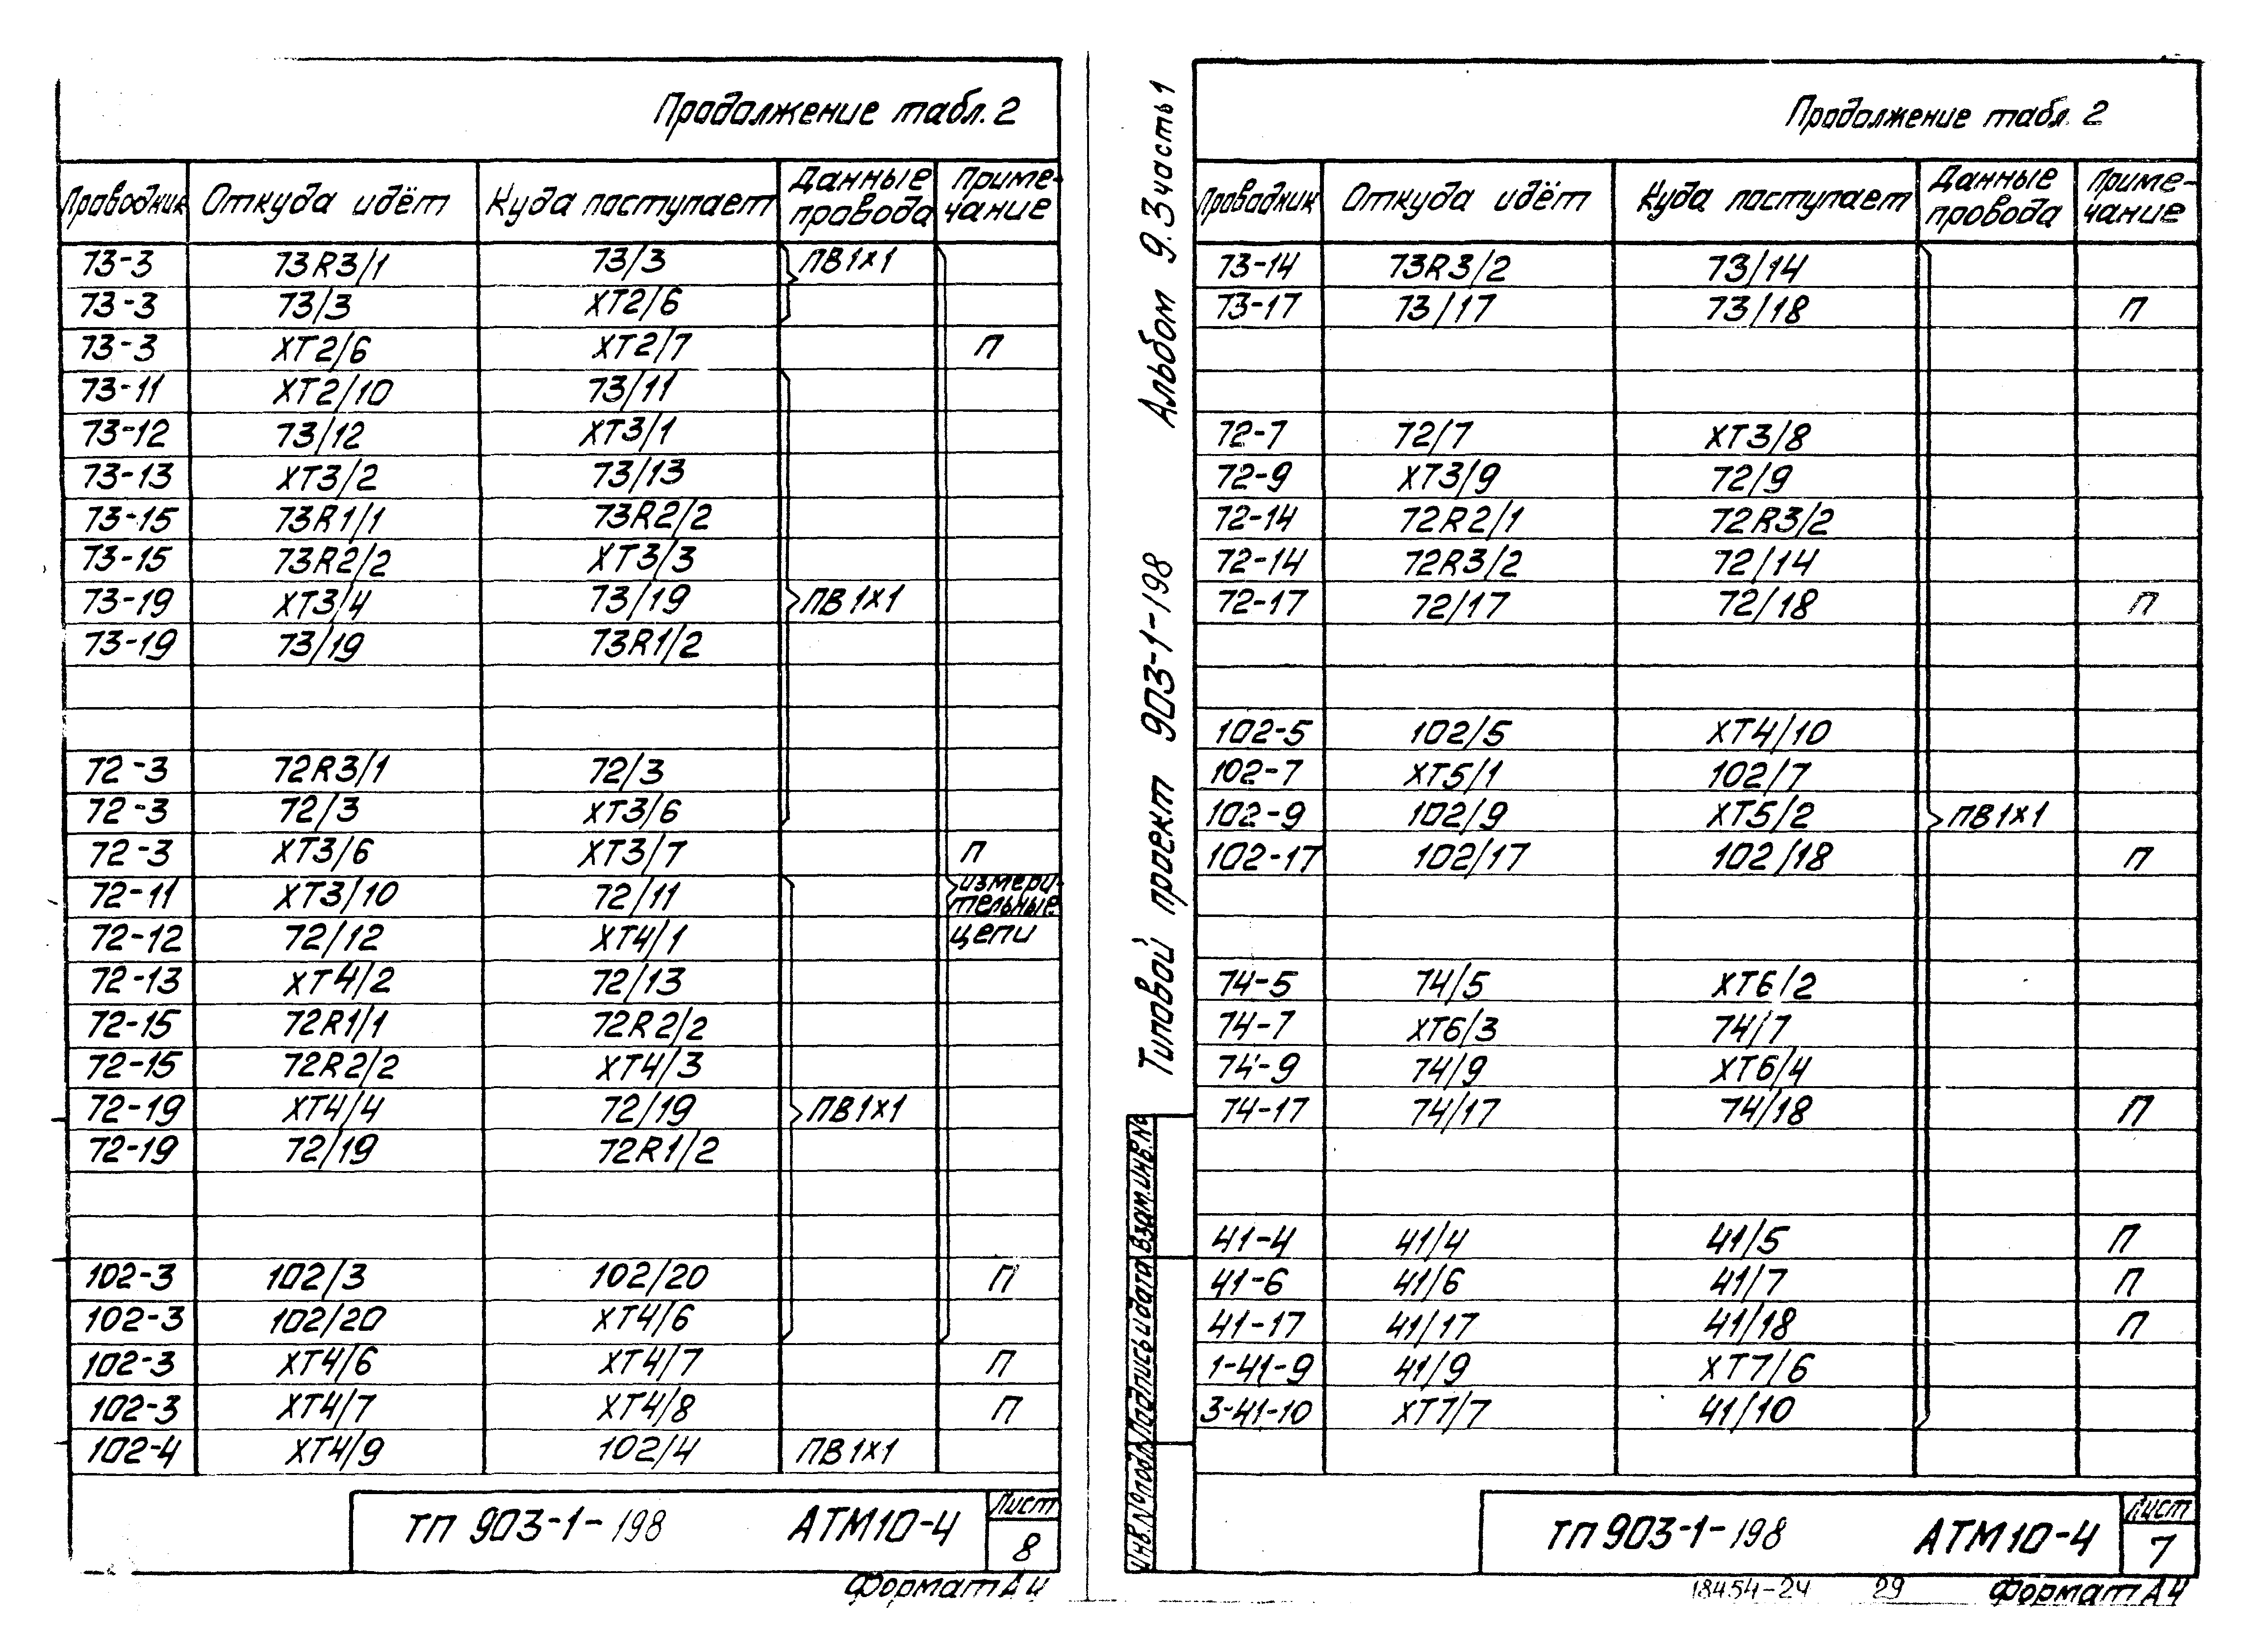 Продолжение табл. 2
Проводник Откуда идёт Куда поступает Данные провода Примечание
73-3 73R3/1 73/3 ПВ1×1
73-3 73/3 ХТ2/6
73-3 ХТ2/6 ХТ2/7 П
73-11 ХТ2/10 73/11
73-12 73/12 ХТ3/1
73-13 ХТ3/2 73/13
73-15 73R1/1 73R2/2
73-15 73R2/2 ХТ3/3
73-19 ХТ3/4 73/19 ПВ1×1
73-19 73/19 73R1/2
72-3 72R3/1 72/3
72-3 72/3 ХТ3/6
72-3 ХТ3/6 ХТ3/7 П
72-11 ХТ3/10 72/11 измери-
тельные
72-12 72/12 ХТ4/1 цепи
72-13 ХТ4/2 72/13
72-15 72R1/1 72R2/2
72-15 72R2/2 ХТ4/3
72-19 ХТ4/4 72/19 ПВ1×1
72-19 72/19 72R1/2
102-3 102/3 102/20 П
102-3 102/20 ХТ4/6
102-3 ХТ4/6 ХТ4/7 П
102-3 ХТ4/7 ХТ4/8 П
102-4 ХТ4/9 102/4 ПВ1×1
ТП 903-1-198 АТМ10-4 Лист
8
Формат А4
Типовой проект 903-1-198 Альбом 9.3 часть 1
Инв.№подл. Подпись и дата Взам.инв.№
Продолжение табл. 2
Проводник Откуда идёт Куда поступает Данные провода Примечание
73-14 73R3/2 73/14
73-17 73/17 73/18 П
72-7 72/7 ХТ3/8
72-9 ХТ3/9 72/9
72-14 72R2/1 72R3/2
72-14 72R3/2 72/14
72-17 72/17 72/18 П
102-5 102/5 ХТ4/10
102-7 ХТ5/1 102/7
102-9 102/9 ХТ5/2 ПВ1×1
102-17 102/17 102/18 П
74-5 74/5 ХТ6/2
74-7 ХТ6/3 74/7
74-9 74/9 ХТ6/4
74-17 74/17 74/18 П
41-4 41/4 41/5 П
41-6 41/6 41/7 П
41-17 41/17 41/18 П
1-41-9 41/9 ХТ7/6
3-41-10 ХТ7/7 41/10
ТП 903-1-198 АТМ10-4 Лист
7
18454-24 29 Формат А4